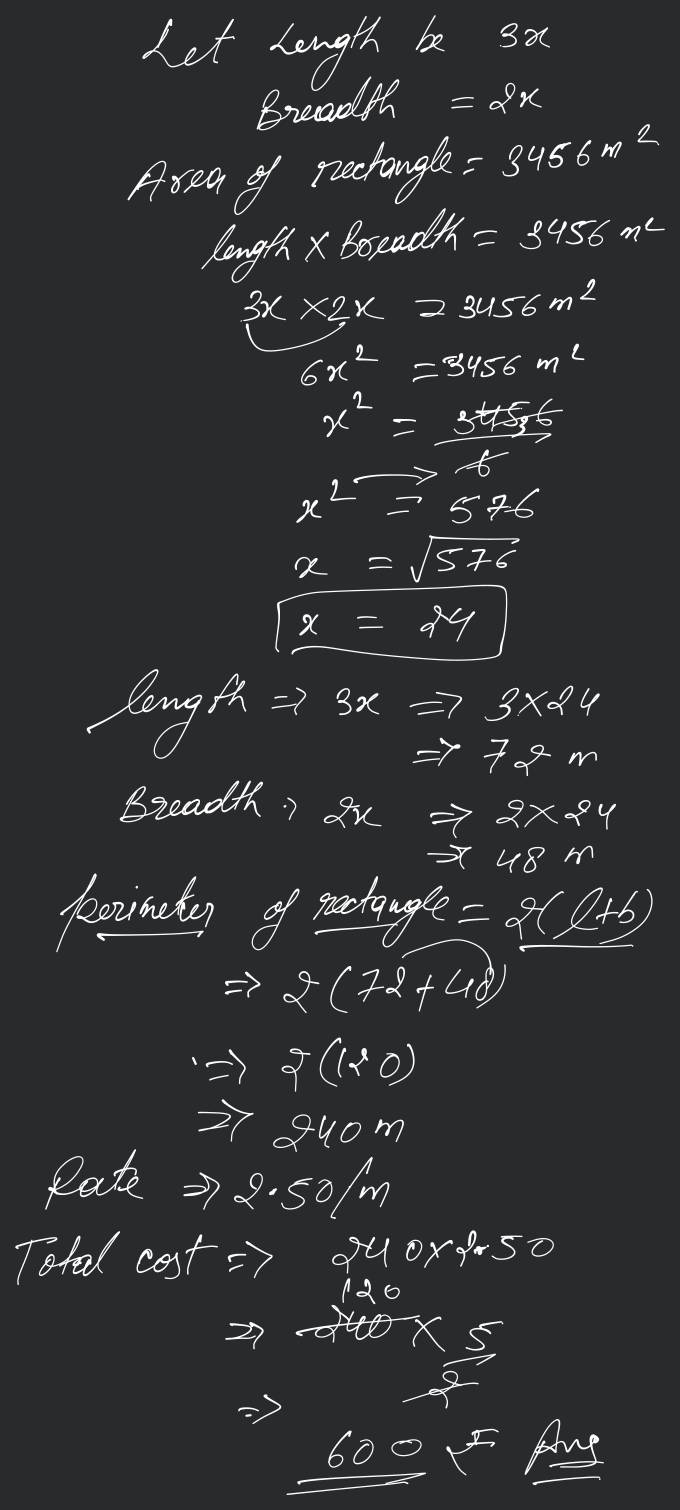 Let Length be 3x
Breadth = 2x
Area of rectangle = 3456 m²
length × Breadth = 3456 m²
3x × 2x = 3456 m²
6x² = 3456 m²
x² = 3456
6
x² = 576
x = √576
x = 24
length => 3x => 3×24
=> 72 m
Breadth => 2x => 2×24
=> 48 m
perimeter of rectangle = 2(l+b)
=> 2(72+48)
=> 2(120)
=> 240 m
Rate => 2.50/m
Total cost => 240×2.50
120
=> 240 × 5
2
=>
600 ₹ Ans